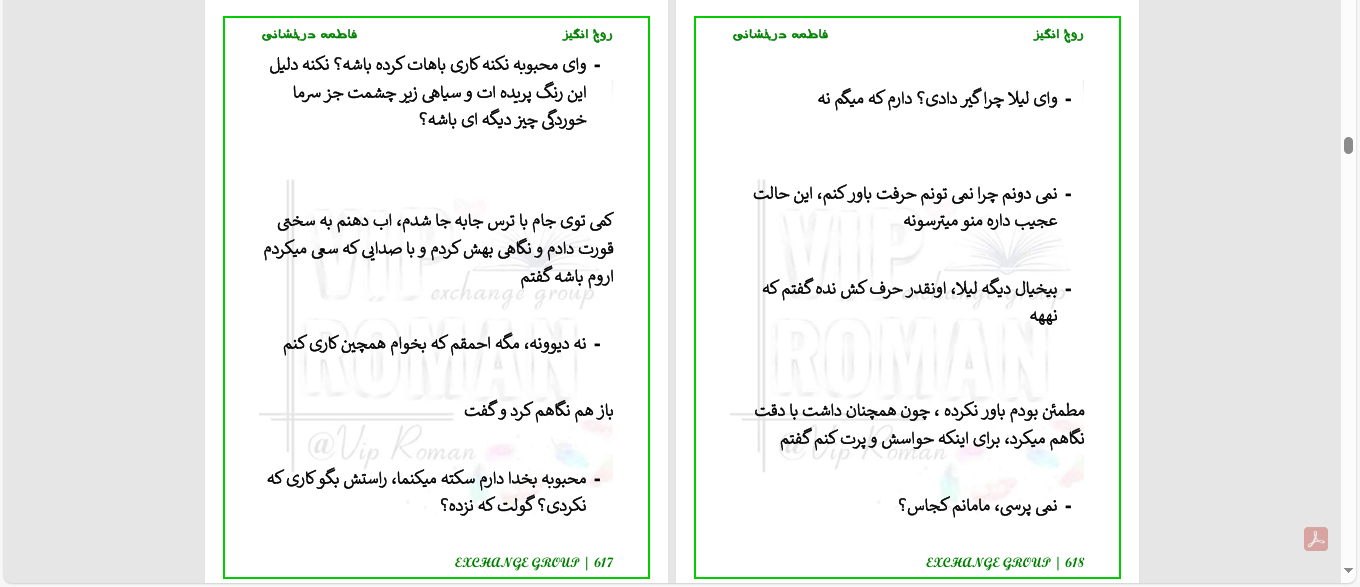 روح انگیز فاطمه درخشانی
- وای محبوبه نکنه کاری باهات کرده باشه؟ نکنه دلیل
این رنگ پریده ات و سیاهی زیر چشمت جز سرما
خوردگی چیز دیگه ای باشه؟
کمی توی جام با ترس جابه جا شدم، اب دهنم به سختی
قورت دادم و نگاهی بهش کردم و با صدایی که سعی میکردم
اروم باشه گفتم
- نه دیوونه، مگه احمقم که بخوام همچین کاری کنم
باز هم نگاهم کرد و گفت
- محبوبه بخدا دارم سکته میکنما، راستش بگو کاری که
نکردی؟ گولت که نزده؟
VIP
exchange group
ROMAN
@Vip Roman
EXCHANGE GROUP | 617
روح انگیز فاطمه درخشانی
- وای لیلا چرا گیر دادی؟ دارم که میگم نه
- نمی دونم چرا نمی تونم حرفت باور کنم، این حالت
عجیب داره منو میترسونه
- بیخیال دیگه لیلا، اونقدر حرف کش نده گفتم که
نههه
مطمئن بودم باور نکرده ، چون همچنان داشت با دقت
نگاهم میکرد، برای اینکه حواسش و پرت کنم گفتم
- نمی پرسی، مامانم کجاس؟
VIP
exchange group
ROMAN
@Vip Roman
EXCHANGE GROUP | 618